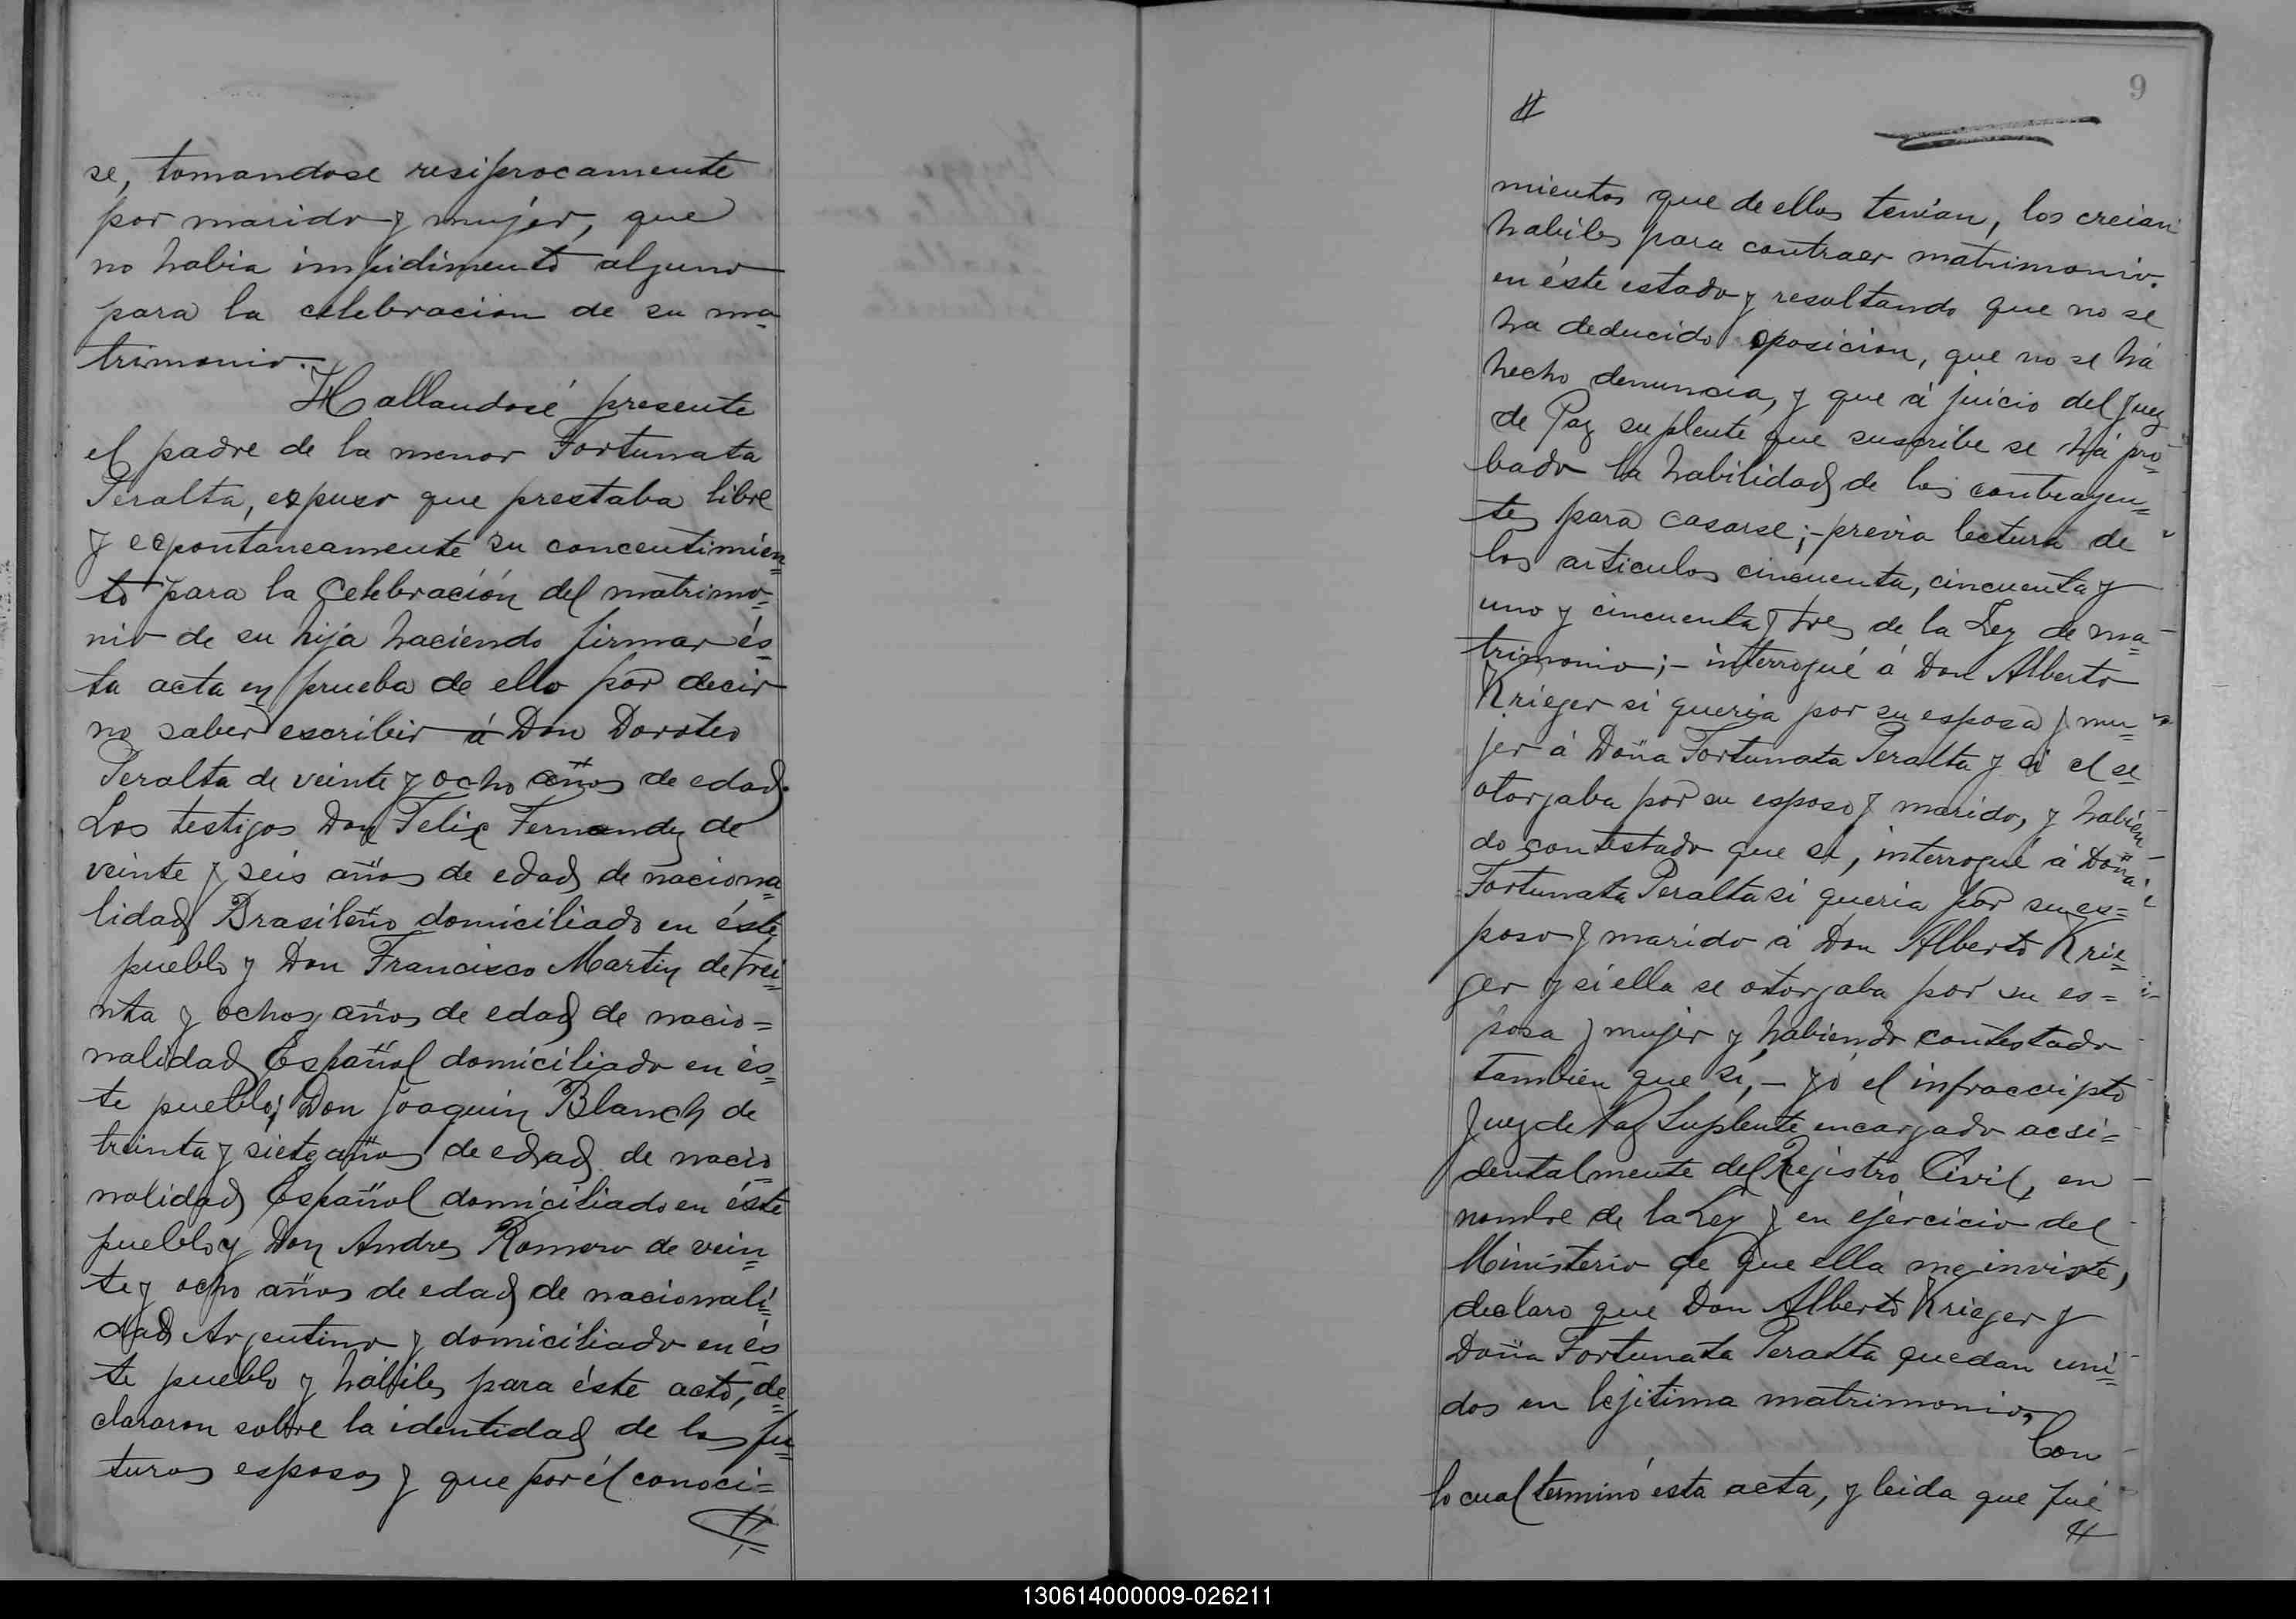 se, tomandose resiprocamente
por marido y mujer, que
no habia impidimento alguno
para la celebracion de su ma=
trimonio.
Hallandosé presente
el padre de la menor Fortunata
Peralta, expuso que prestaba libre
y espontaneamente su concentimien=
to para la Celebración del matrimo=
nio de su hija haciendo firmar és=
ta acta en prueba de ello por decir
no saber escribir á Don Doroteo
Peralta de veinte y ocho años de edad.
Los testigos Don Felix Fernandz de
veinte y seis años de edad de naciona
lidad Brasileño domiciliado en éste
pueblo y Don Francisco Martin de trei=
nta y ochos años de edad de nacio=
nalidad Español domiciliado en és=
te pueblo; Don Joaquin Blanch de
treinta y siete años de edad de nacio
nalidad Español domiciliado en éste
pueblo y Don Andres Romero de vein=
te y ocho años de edad de nacionali=
dad Argentino y domiciliado en és
te pueblo y hábiles para éste acto, de=
clararon sobre la identidad de los fu=
turos esposos y que por él conoci=
9
mientos que de ellos tenian, los creian
habiles para contraer matrimonio.
en éste estado y resultando que no se
ha deducido oposición, que no se há
hecho denuncia, y que á juicio del Juez
de Paz suplente que suscribe se há pro=
bado la habilidad de los contrayen=
tes para casarse;- previa lectura de
los articulos cincuenta, cincuenta y
uno y cincuenta y tres de la Ley de ma=
trimonio;- interrogué á Don Alberto
Krieger si queria por su esposa y mu=
jer á Doña Fortunata Peralta y si el se
otorjaba por su esposo y marido, y habien
do contestado que si, interrogué á Doña
Fortunata Peralta si queria por su es=
poso y marido á Don Alberto Krie=
ger y si ella se otorjaba por su es=
posa y mujer y habiendo contestado
tambien que si,- yó el infraccripto
Juez de Paz Suplente encargado acsi=
dentalmente del Rejistro Civil, en
nombre de la Ley y en ejércicio del
Ministerio de que ella me inviste,
declaro que Don Alberto Krieger y
Doña Fortunata Peralta quedan uni=
dos en lejitima matrimonio.
Con
lo cual terminó ésta acta, y leida que fué
130614000009-026211